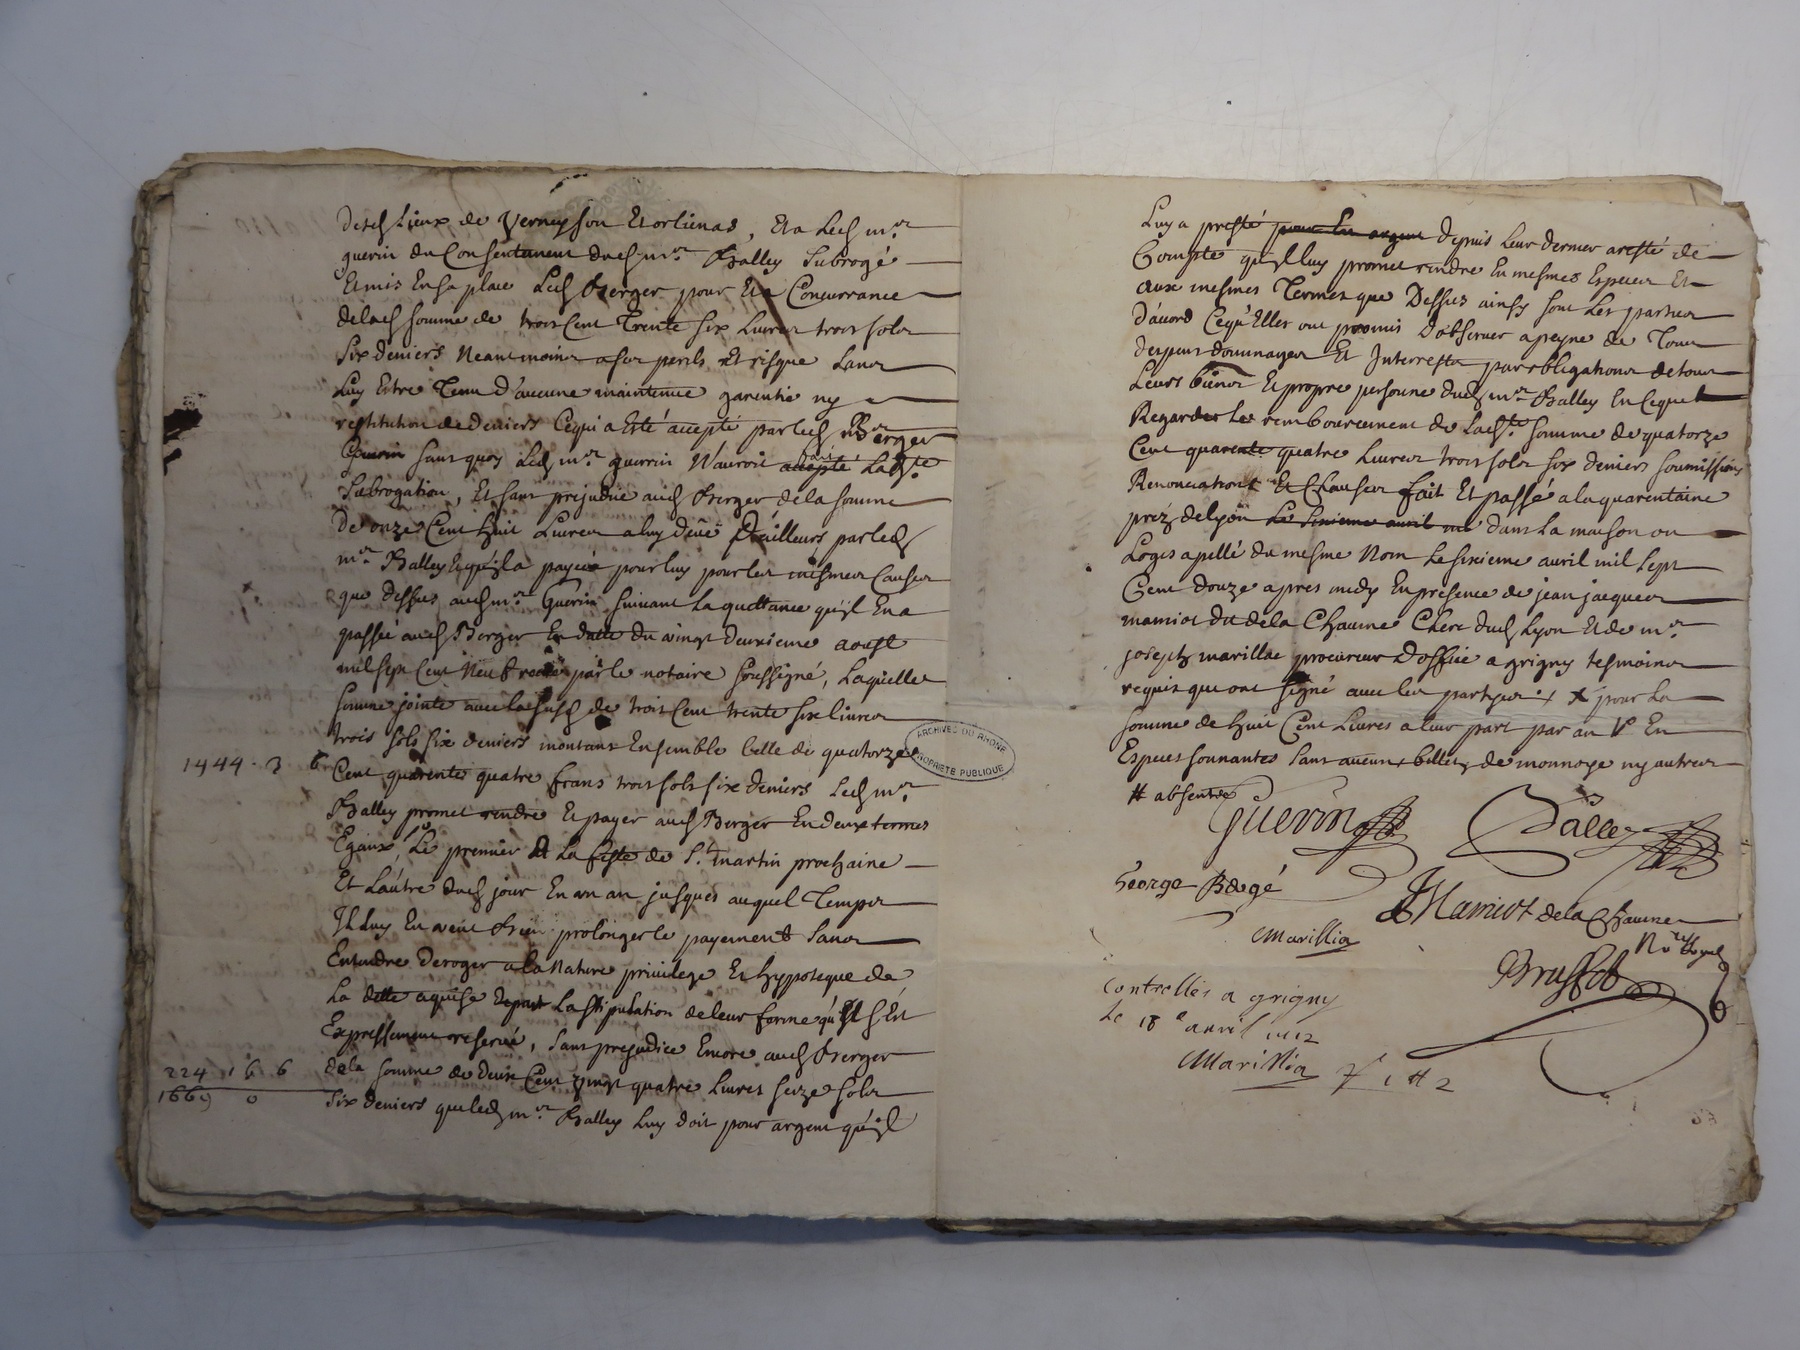 desd Lieux de Verneyson Et orlienas, Et a Led m.r
guerin du Consentement dud m.r Balley Subrogé
Et mis En sa place Led Berger pour Et a Concurrance
delad somme de trois Cent Trente six Livres trois sols
six deniers Neantmoins a ses perils Et risque sans
Luy Estre Tenu d'aucune maintenue garentie ny
restitution de deniers Cequi a Esté accepté par led Berger
sans quoy Led m.r guerrin N'auroit fait Lad.te
Subrogation, Et sans prejudice aud Berger de la somme
De onze Cent huit Livres a luy deue D'ailleurs par led
m.r Balley Et qu'il a payée pour luy pour les mesmes Causes
que dessus aud m.r Guerin suivant la quittance qu'il En a
passée aud Berger En datte du vingt deuxieme aoust
mil sept Cent Neuf par le notaire soussigné, Laquelle
somme jointe avec la susd de trois Cent trente six livres
trois sols six deniers montant Ensemble Celle de quatorze
1444 . 3 6
Cent quarente quatre frans trois sols six deniers Led m.r
Balley promet rendre Et payer aud Berger En deux termes
Egaux, Le premier A La feste de S.t martin prochaine
Et Lautre dud jour En un an jusques auquel Temps
Il Luy En veut Bien prolonger le payement sans
Entendre deroger a la Nature privilege Et hypoteque de
La dette aquise La stipulation de leur forme qu'Il s'Est
Expressement reservé, sans prejudice Encore aud Berger
224 16 6
de la somme de deux Cent vingt quatre Livres seize sols
1669 0
six deniers que led m.r Balley Luy doit pour argent qu'il
Luy a presté pour Les argent depuis Leur dernier aresté de
Compte qu'il luy promet rendre En mesmes Especes Et
aux mesmes Termes que Dessus ainsy sont Les parties
d'acord Cequ'Elles ont promis d'observer a peyne de Tous
despens dommages Et Interrests par obligations de tous
Leurs biens Et propre personne dud m.r Balley En Ceque
Regarde Le remboursement de Lad.te somme de quatorze
Cent quarente quatre Livres trois sols six deniers soumissions
Renonciations Et Clauses fait Et passé a la quarentaine
prez de lyon Le sixieme avril mil dans La maison ou
Logis apellé du mesme Nom Le sixieme avril mil sept
Cent douze apres midy En presence de jean jacques
mamiot dit de la Chaume Clerc dud Lyon Et de m.r
joseph marillac procureur d'office a grigny tesmoins
requis qui ont signé avec les parties X pour La
somme de huit Cent Livres a leur part par an En
Especes sonnantes sans aucuns billets de monnoye ny autres
# absentes
Guerrin
Balley
George Bergé
JMamiot de la Chaume
Marillia
No.re Royal
Brussot
Controllés a grigny
Le 18e avril 1712
Marillia
ARCHIVES DU RHONE
PROPRIETE PUBLIQUE